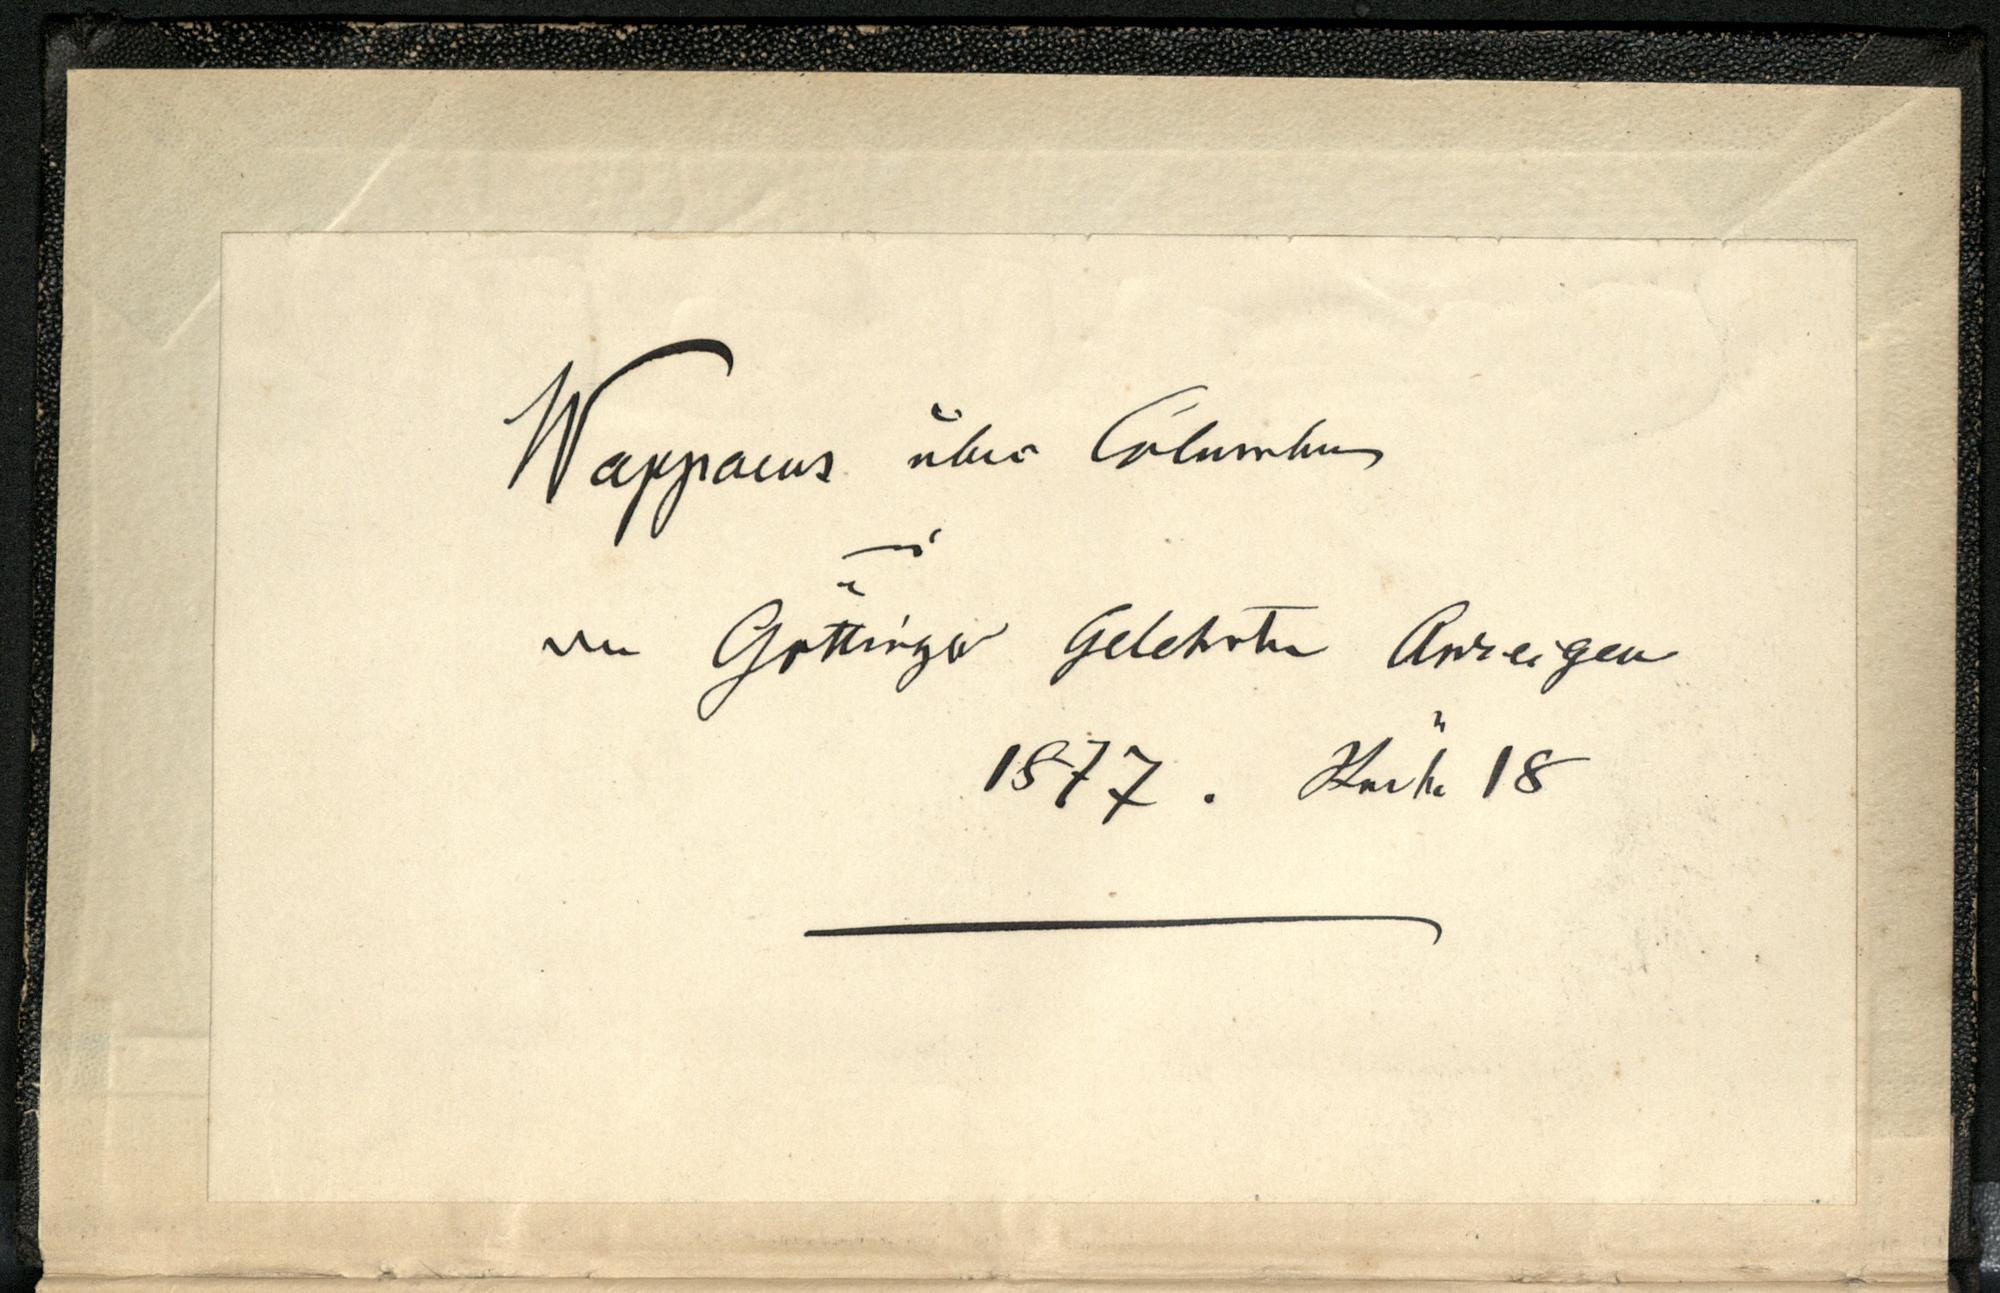 Wappaeus über Columbus
in Göttinger Gelehrten Anzeigen
1877. Stück 18